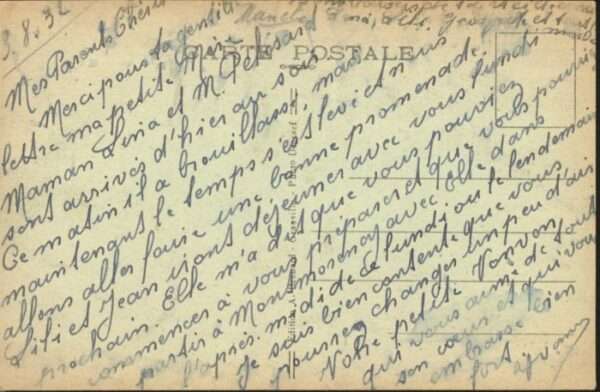 3.8.32
CARTE POSTALE
Mes Parents Chéris
Merci pour ta gentille
lettre ma petite
Maman Lina et M. Pelssard
sont arrivés d'hier au soir
Ce matin il a brouillassé, mais
maintenant le temps s'est levé et nous
allons aller faire une bonne promenade.
Lili et Jean iront déjeuner avec vous lundi
prochain. Elle m'a dit que vous pouviez
commencer à vous préparer et que vous pourriez
partir à Montmorency avec Elle dans
l'après-midi de ce lundi ou le lendemain
Je suis bien contente que vous
pourrez changer un peu d'air
Votre petite Vonvon
qui vous aime de tout
son cœur et qui vous
embrasse bien
fort